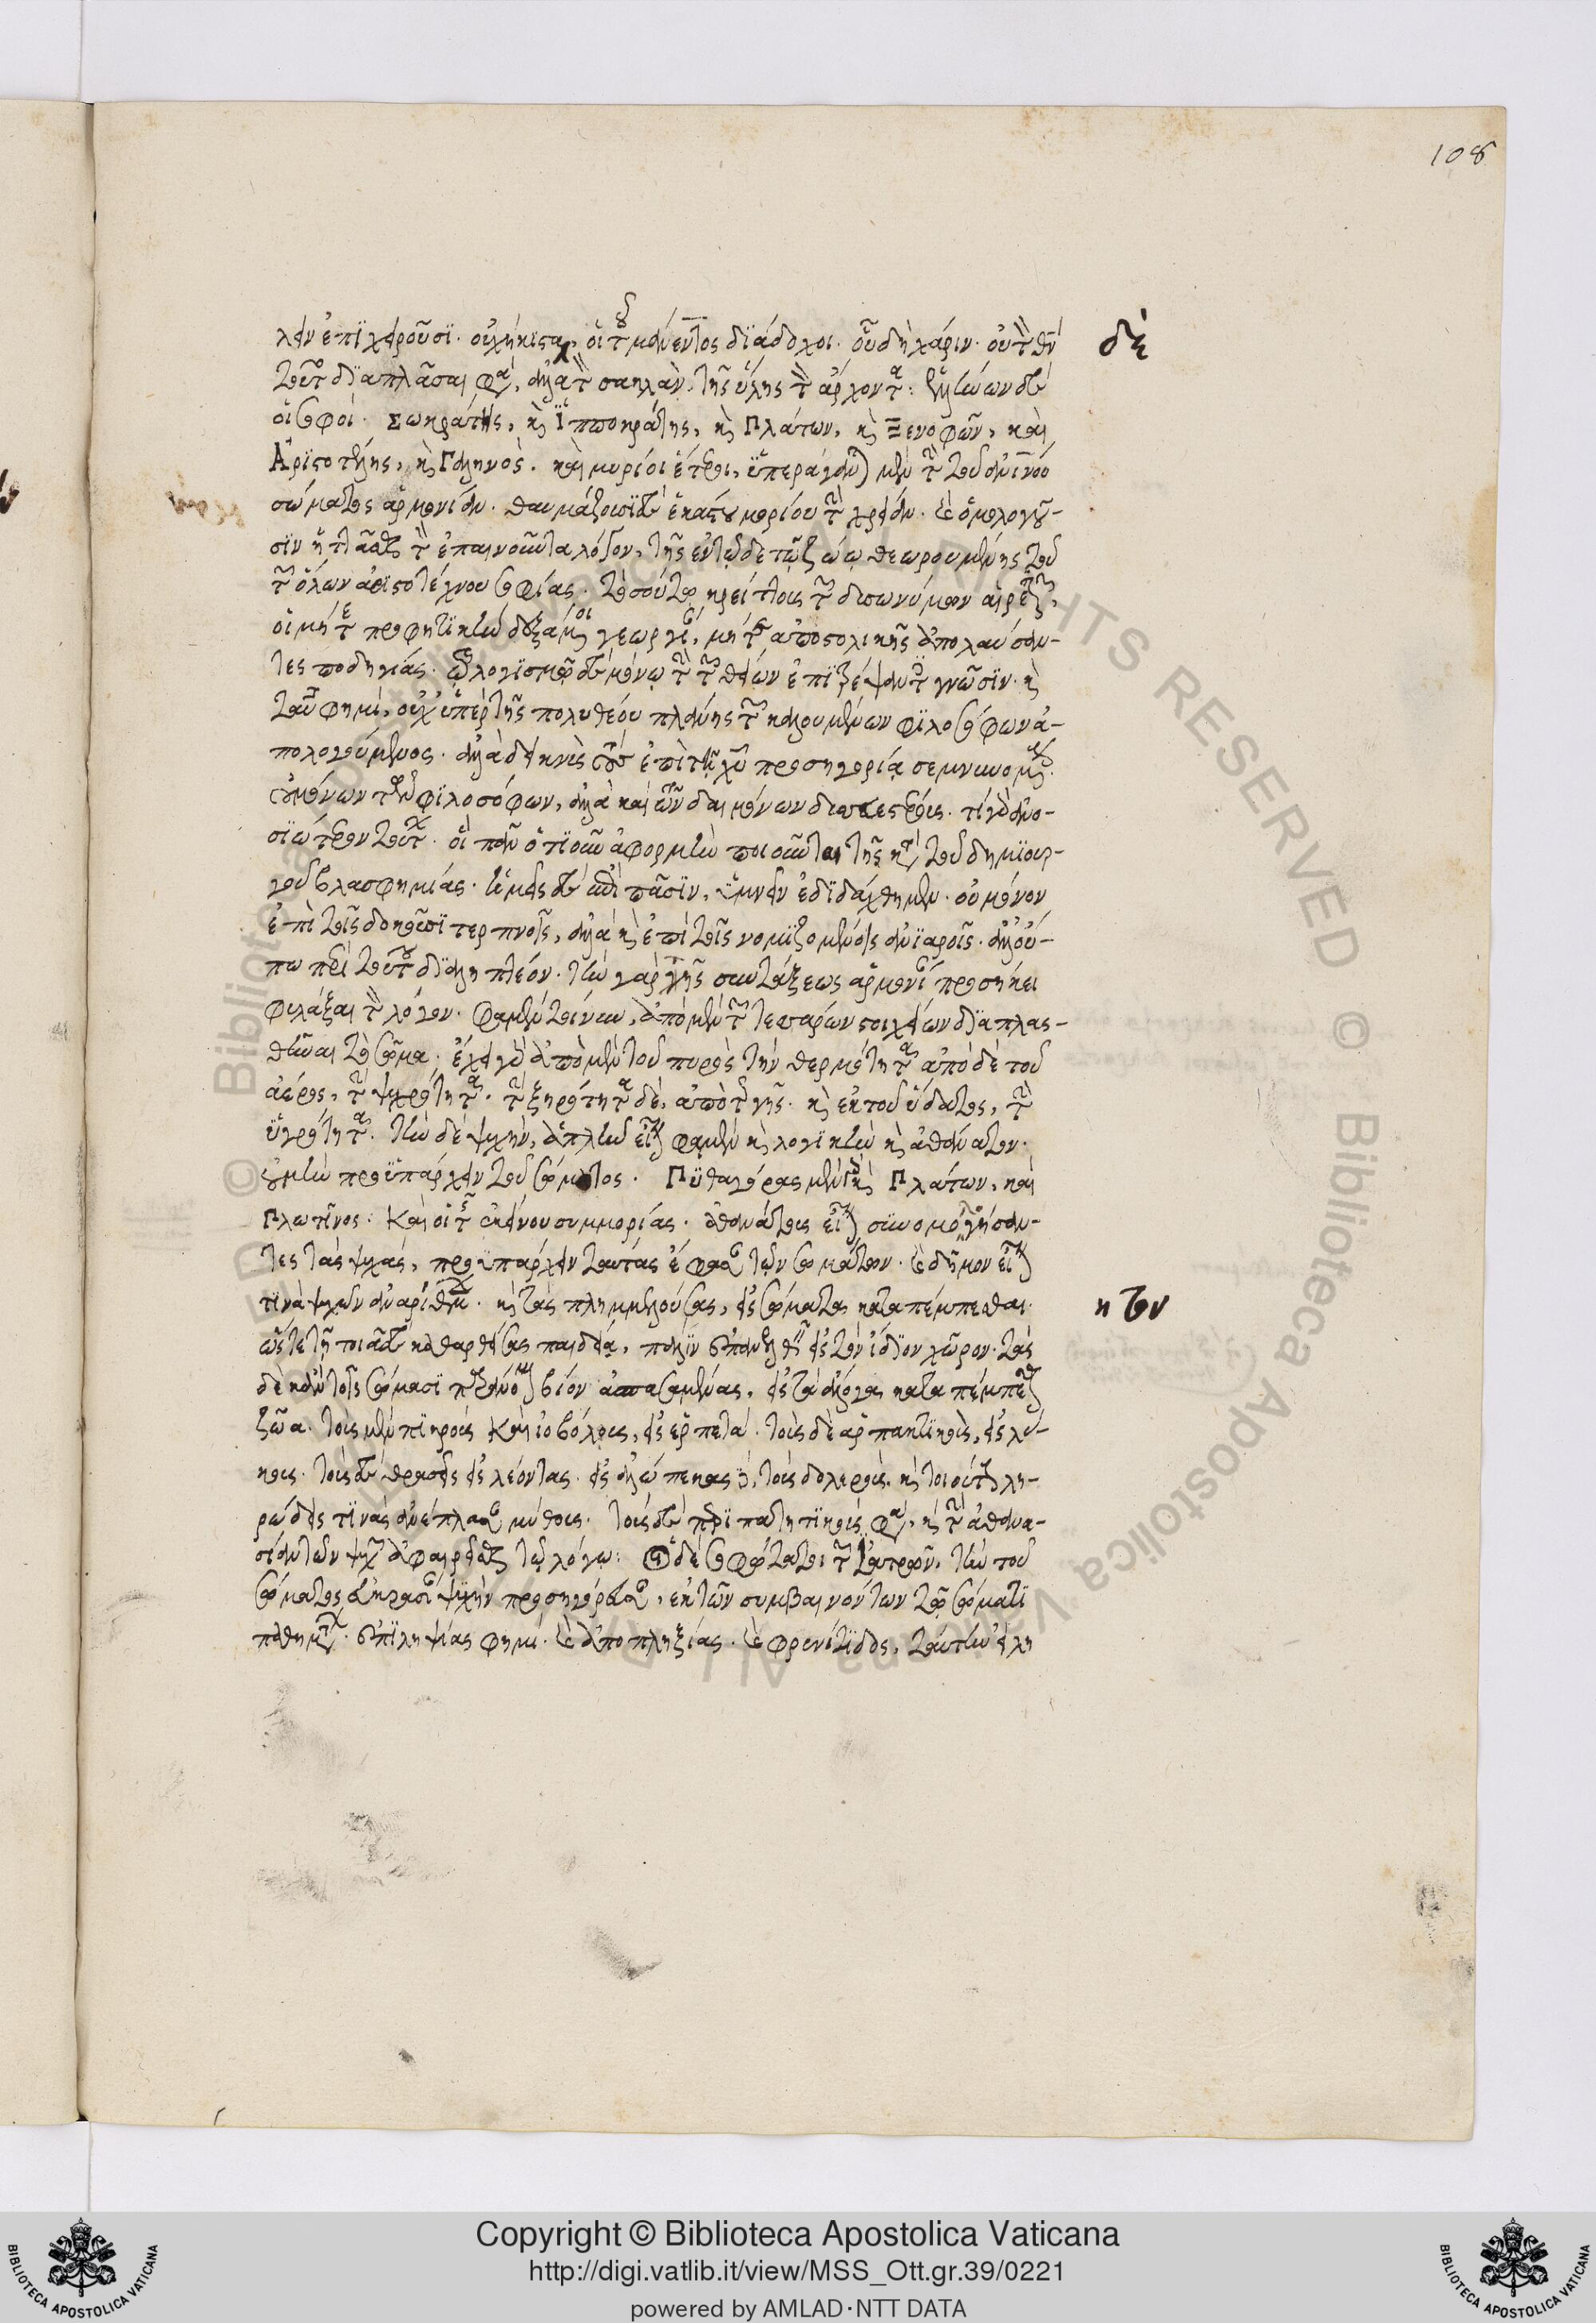 108
λειν ἐπιχειροῦσι. οὐχ ἥκιστα, οἱ τοῦ μανεντος διάδοχοι. οὗ δὴ χάριν. οὐ τὸν θν
τοῦτον διαπλᾶσαι φασί, ἀλλὰ τὸν σακλὰν, τῆς ὕλης τὸν ἄρχοντα: Ἑλλήνων δὲ
οἱ σοφοί. Σωκράτης, κὶ Ἱπποκράτης, κὶ Πλάτων, κὶ Ξενοφῶν, καὶ
Ἀριστοτέλης, κὶ Γαληνὸς. καὶ μυρίοι ἕτεροι, ὑπεράγανται μὲν τὴν τοῦ ἀνινοῦ
σώματος ἁρμονίαν. θαυμάζουσι δὲ ἑκάστου μορίου τὴν χρείαν. καὶ ὁμολογοῦ-
σιν ἡττᾶσθαι τὸν ἐπαινοῦντα λόγον, τῆς ἐν τῷδε τῷ ζώῳ θεωρουμένης τοῦ
τῶν ὅλων ἀριστοτέχνου σοφίας. τοσούτῳ κρείττους τῶν δυσωνύμων αἱρέσεων,
οἱ μήτε προφητικὴν δεξάμενοι γεωργίαν, μήτε ἀποστολικῆς ἀπολαύσαν-
τες ποδηγίας. τῷ λογισμῷ δὲ μόνῳ τὴν τῶν θείων ἐπιτρέψαντες γνῶσιν. κὶ
ταῦτα φημί, οὐχ ὑπὲρ τῆς πολυθέου πλάνης τῶν καλουμένων φιλοσόφων ἀ-
πολογούμενος. ἀλλὰ δεικνὺς τοὺς ἐπὶ τῇ χῦ προσηγορίᾳ σεμνυνομένους.
οὐ μόνων τῶν φιλοσόφων, ἀλλὰ καὶ τῶν δαιμόνων δυσσεβεστέρους. τί γὰρ ἀνο-
σιώτερον τούτων. οἳ πᾶν ὁτιοῦν ἀφορμὴν ποιοῦνται τῆς κατὰ τοῦ δημιουρ-
γοῦ βλασφημίας. ἡμεῖς δὲ ἐπὶ πᾶσιν, ὑμνεῖν ἐδιδάχθημεν. οὐ μόνον
ἐπὶ τοῖς δοκοῦσι τερπνοῖς, ἀλλὰ κὶ ἐπὶ τοῖς νομιζομένοις ἀνιαροῖς. ἀλλ' οὔ-
πω περὶ τούτου διαλεκτέον. τὴν γὰρ τῆς συντάξεως ἁρμονίαν προσήκει
φυλάξαι τὸν λόγον. φαμὲν τοίνυν, ἀπὸ μὲν τῶν τεσσάρων στοιχείων διαπλασ-
θῆναι τὸ σῶμα. ἔχει γὰρ ἀπὸ μὲν τοῦ πυρὸς τὴν θερμότητα ἀπὸ δὲ τοῦ
ἀέρος, τὴν ψυχρότητα. τὴν ξηρότητα δὲ, ἀπὸ τῆς γῆς. κὶ ἐκ τοῦ ὕδατος, τὴν
ὑγρότητα. τὴν δὲ ψυχὴν, ἁπλῆν εἶναι φαμὲν κὶ λογικὴν κὶ ἀθάνατον.
οὐ μὴν προϋπάρχειν τοῦ σώματος. Πυθαγόρας μὲν γὰρ κὶ Πλάτων, καὶ
Πλωτῖνος. Καὶ οἱ τῆς ἐκείνου συμμορίας. ἀθανάτους εἶναι συνομολογήσαν-
τες τὰς ψυχάς, προϋπάρχειν ταύτας ἔφασαν τῶν σωμάτων. καὶ δῆμον εἶναι
τινὰ ψυχῶν ἀναρίθμων. κὶ τὰς πλημμελούσας, εἰς σώματα καταπέμπεσθαι.
ὥστε τῇ τοιᾷδε καθαρθείσας παιδείᾳ, πάλιν ἐπανελθεῖν εἰς τὸν ἴδιον χῶρον. τὰς
δὲ κἀν τοῖς σώμασι παράνομον βίον ἀσπασαμένας, εἰς τὰ ἄλογα καταπέμπεσθαι
ζῶα. τοὺς μὲν πικροὺς Καὶ ἰοβόλους, εἰς ἑρπετά. τοὺς δὲ ἁρπακτικοὺς, εἰς λύ-
κους. τοὺς δὲ θρασεῖς εἰς λέοντας. εἰς ἀλώπεκας δέ, τοὺς δολεροὺς. κὶ τοιούτους λη-
ρώδεις τινὰς ἀνέπλασαν μύθους. τοὺς δὲ περιπατητικοὺς φασί, κὶ τὴν ἀθανα-
σίαν τῶν ψυχῶν ἀφαιρεῖσθαι τῷ λόγῳ: οἱ δὲ σοφώτατοι τῶν ἰατρῶν, τὴν τοῦ
σώματος κρᾶσιν ψυχὴν προσηγόρευσαν, ἐκ τῶν συμβαινόντων τῷ σώματι
παθημάτων. ἐπιληψίας φημί. καὶ ἀποπληξίας. καὶ φρενίτιδος, ταύτην εἰλη
δὲ
κτον
Copyright © Biblioteca Apostolica Vaticana
http://digi.vatlib.it/view/MSS_Ott.gr.39/0221
powered by AMLAD·NTT DATA